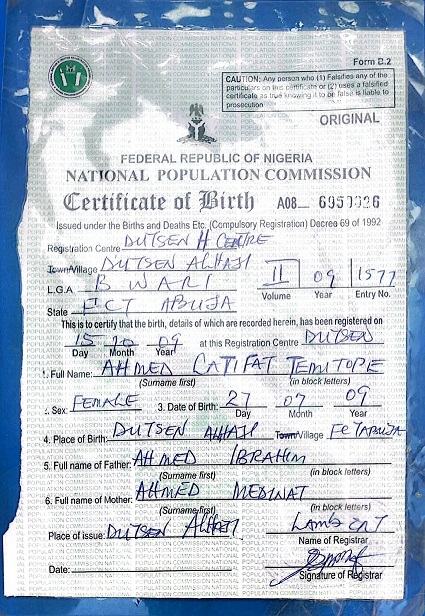 Form B.2
CAUTION: Any person who (1) Falsifies any of the
particulars on this certificate or (2) uses a falsified
certificate as true knowing it to be false is liable to
prosecution
ORIGINAL
FEDERAL REPUBLIC OF NIGERIA
NATIONAL POPULATION COMMISSION
Certificate of Birth A08 6950026
Issued under the Births and Deaths Etc, (Compulsory Registration) Decree 69 of 1992
Registration Centre DUTSEN H CENTRE
Town/Village DUTSEN ALHAJI
L.G.A BWARI II 09 1577
Volume Year Entry No.
State FCT ABUJA
This is to certify that the birth, details of which are recorded herein, has been registered on
15 10 09 at this Registration Centre DUTSEN
Day Month Year
1. Full Name: AHMED LATIFAT TEMITOPE
(Surname first) (in block letters)
2. Sex: FEMALE 3. Date of Birth: 27 07 09
Day Month Year
4. Place of Birth: DUTSEN ALHAJI Town/Village FCT ABUJA
5. Full name of Father: AHMED IBRAHIM
(Surname first) (in block letters)
6. Full name of Mother: AHMED MEDINAT
(Surname first) (in block letters)
Place of issue: DUTSEN ALHAJI
Name of Registrar
Date:
Signature of Registrar